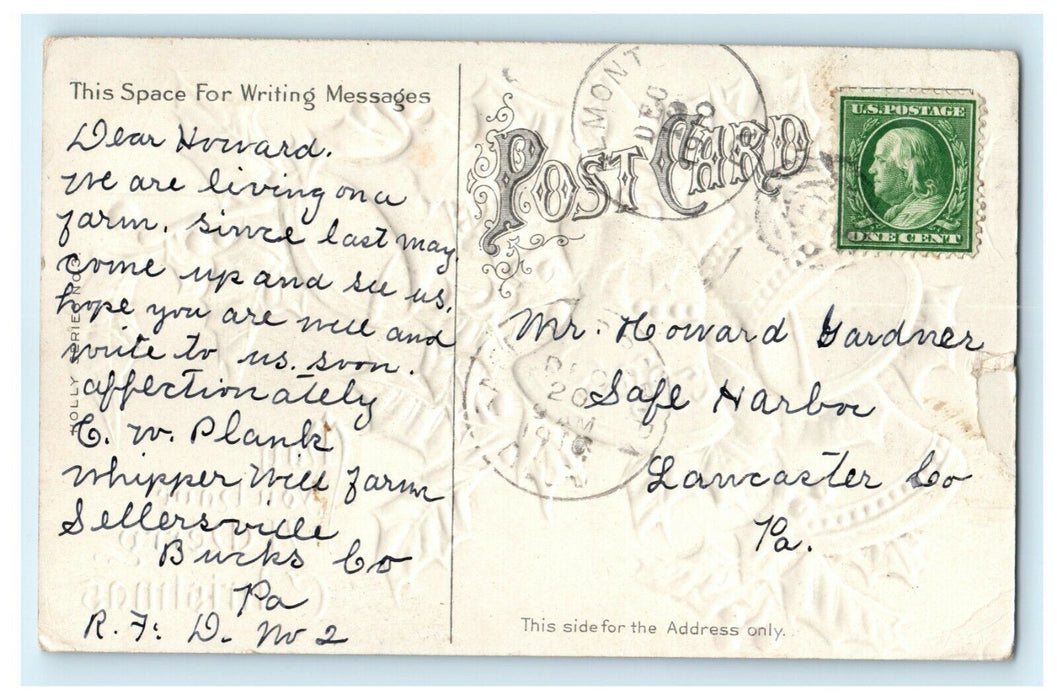 This Space For Writing Messages
Dear Howard.
we are living on a
farm. since last may
come up and see us.
hope you are well and
write to us. soon.
affectionately
C. W. Plank
Whipper Will Farm
Sellersville
Bucks Co
Pa
R. F. D. No 2
HOLLY SERIES NO
POST CARD
MONT
DEC
U.S. POSTAGE
ONE CENT
DEC
20
AM
Mr. Howard Gardner
Safe Harbor
Lancaster Co
Pa.
This side for the Address only.
Christmas